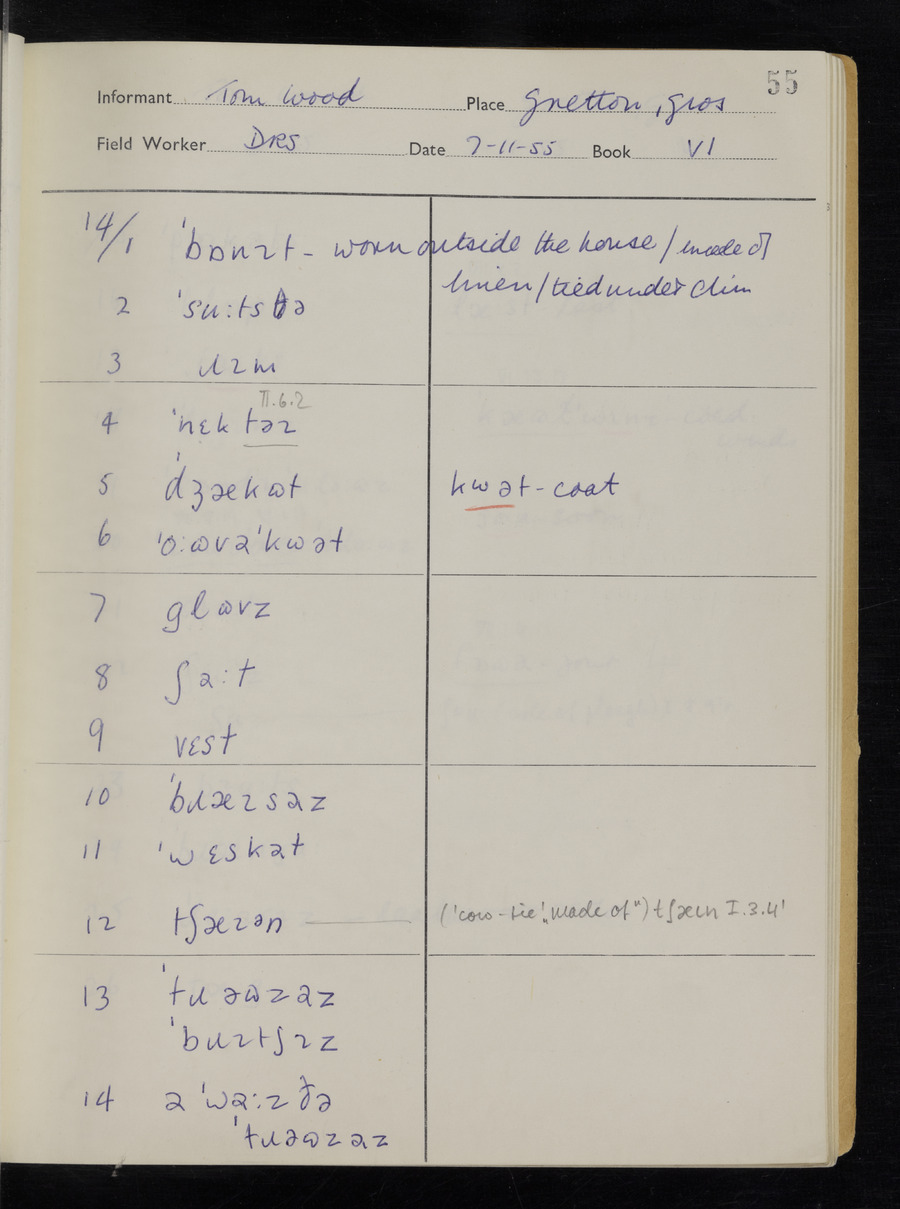 55
Informant Tom Wood Place Gretton, Glos
Field Worker DRS Date 7-11-55 Book VI
14/1 ˈbɒnɪt - worn outside the house / made of
linen / tied under chin
2 ˈsu:ts ðə
3 ɹɪm
II.6.2
4 ˈnɛktəɪ
5 ˈdʒækɷt kwət - coat
6 ˈo:ɷvəˈkwət
7 glɷvz
8 ʃə:t
9 vɛst
10 ˈbɹæɪsəz
11 ˈwɛskət
12 tʃæɪən ('cow-tie' "made of") tʃæɩn I.3.4'
13 ˈtɹəɷzəz
ˈbɹɪtʃɪz
14 ə ˈwə:z ðə
ˈtɹəɷzəz